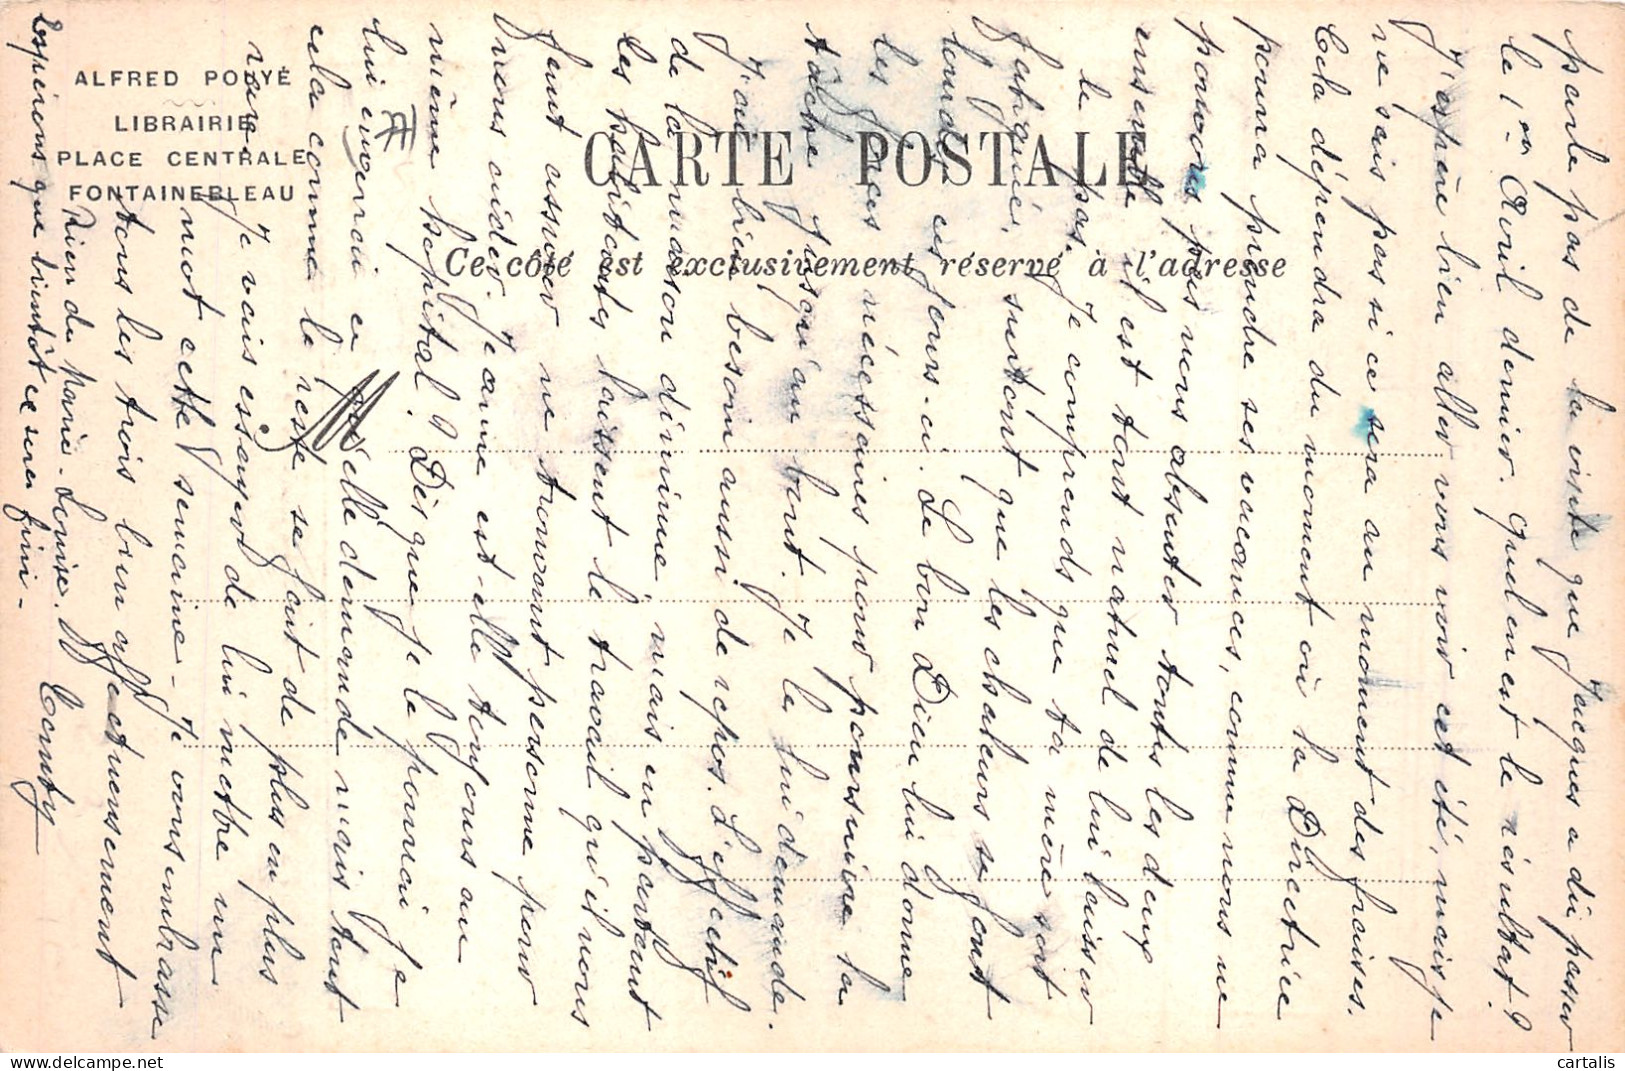 ALFRED POUYÉ
LIBRAIRIE
PLACE CENTRALE
FONTAINEBLEAU
CARTE POSTALE
Ce côté est exclusivement réservé à l'adresse
parle pas de la visite que Jacques a dû passer
le 1er Avril dernier. Quel en est le résultat ?
J'espère bien aller vous voir cet été, mais je
ne sais pas si ce sera au moment des fraises.
Cela dépendra du moment où la Directrice
pourra prendre ses vacances, comme nous ne
pouvons pas nous absenter toutes les deux
ensemble il est tout naturel de lui laisser
le pas. Je comprends que ta mère soit
fatiguée, surtout que les chaleurs se font
lourdes ces jours-ci. Le bon Dieu lui donne
les grâces nécessaires pour poursuivre sa
tâche jusqu'au bout. Je le lui demande.
J'ai bien besoin aussi de repos. L'effectif
de la maison diminue mais en partant
les habitantes laissent le travail qu'il nous
faut assurer ne trouvant personne pour
nous aider. Jeanne est-elle toujours au
même hôpital ? Dès que je le pourrai je
lui enverrai ce qu'elle demande mais tout
cela comme le reste se fait de plus en plus
rare. Je vais essayer de lui mettre un
mot cette semaine - Je vous embrasse
tous les trois bien affectueusement
Rien du Maric. Louise.
Espérons que bientôt ce sera fini -